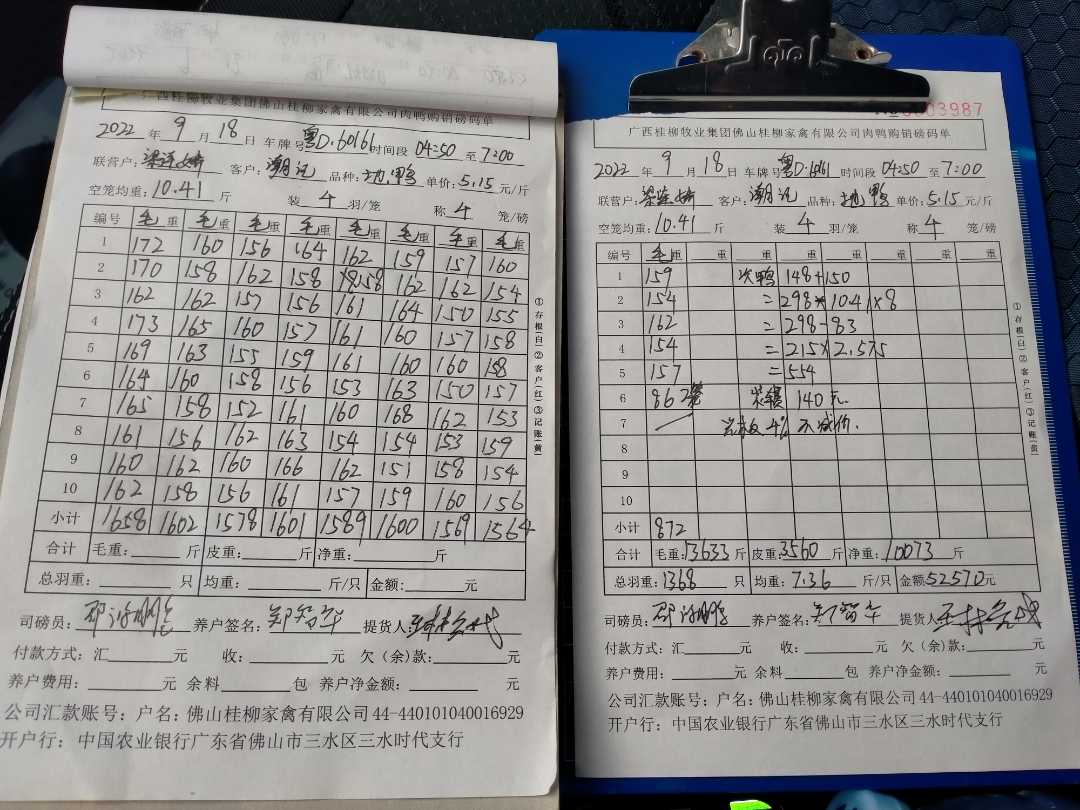 广西桂柳牧业集团佛山桂柳家禽有限公司肉鸭购销磅码单
2022 年 9 月 18 日 车牌号 粤D.60161 时间段 04:50 至 7:00
联营户: 客户: 潮记 品种: 地鸭 单价: 5.15 元/斤
空笼均重: 10.41 斤 装 4 羽/笼 称 4 笼/磅
编号 毛重 毛重 毛重 毛重 毛重 毛重 毛重 毛重
1 172 160 156 164 162 159 157 160
2 170 158 162 158 158 162 162 154
3 162 162 157 156 161 164 150 155
4 173 165 160 157 161 160 157 158
5 169 163 155 159 161 160 160 158
6 164 160 158 156 153 163 150 157
7 165 158 152 161 160 168 162 153
8 161 156 162 163 154 154 153 159
9 160 162 160 166 162 151 158 154
10 162 158 156 161 157 159 160 156
小计 1658 1602 1578 1601 1589 1600 1569 1564
合计 毛重: 斤 皮重: 斤 净重: 斤
总羽重: 只 均重: 斤/只 金额: 元
司磅员: 养户签名: 提货人:
付款方式: 汇 元 收: 元 欠(余)款: 元
养户费用: 元 余料 包 养户净金额: 元
公司汇款账号: 户名: 佛山桂柳家禽有限公司 44-440101040016929
开户行: 中国农业银行广东省佛山市三水区三水时代支行
①存根(白)②客户(红)③记账(黄)
3987
广西桂柳牧业集团佛山桂柳家禽有限公司肉鸭购销磅码单
2022 年 9 月 18 日 车牌号 时间段 04:50 至 7:00
联营户: 客户: 潮记 品种: 地鸭 单价: 5.15 元/斤
空笼均重: 10.41 斤 装 4 羽/笼 称 4 笼/磅
编号 毛重 重 重 重 重 重 重 重
1 159 次鸭 148+150
2 154 =298*10.41×8
3 162 =298-83
4 154 =215×2.575
5 157 =554
6 86 140元
7 4% 不减价.
8
9
10
小计 872
合计 毛重: 13633 斤 皮重: 3560 斤 净重: 10073 斤
总羽重: 1368 只 均重: 7.36 斤/只 金额 52570元
司磅员: 养户签名: 提货人:
付款方式: 汇 元 收: 元 欠(余)款: 元
养户费用: 元 余料 包 养户净金额: 元
公司汇款账号: 户名: 佛山桂柳家禽有限公司 44-440101040016929
开户行: 中国农业银行广东省佛山市三水区三水时代支行
①存根(白)②客户(红)③记账(黄)